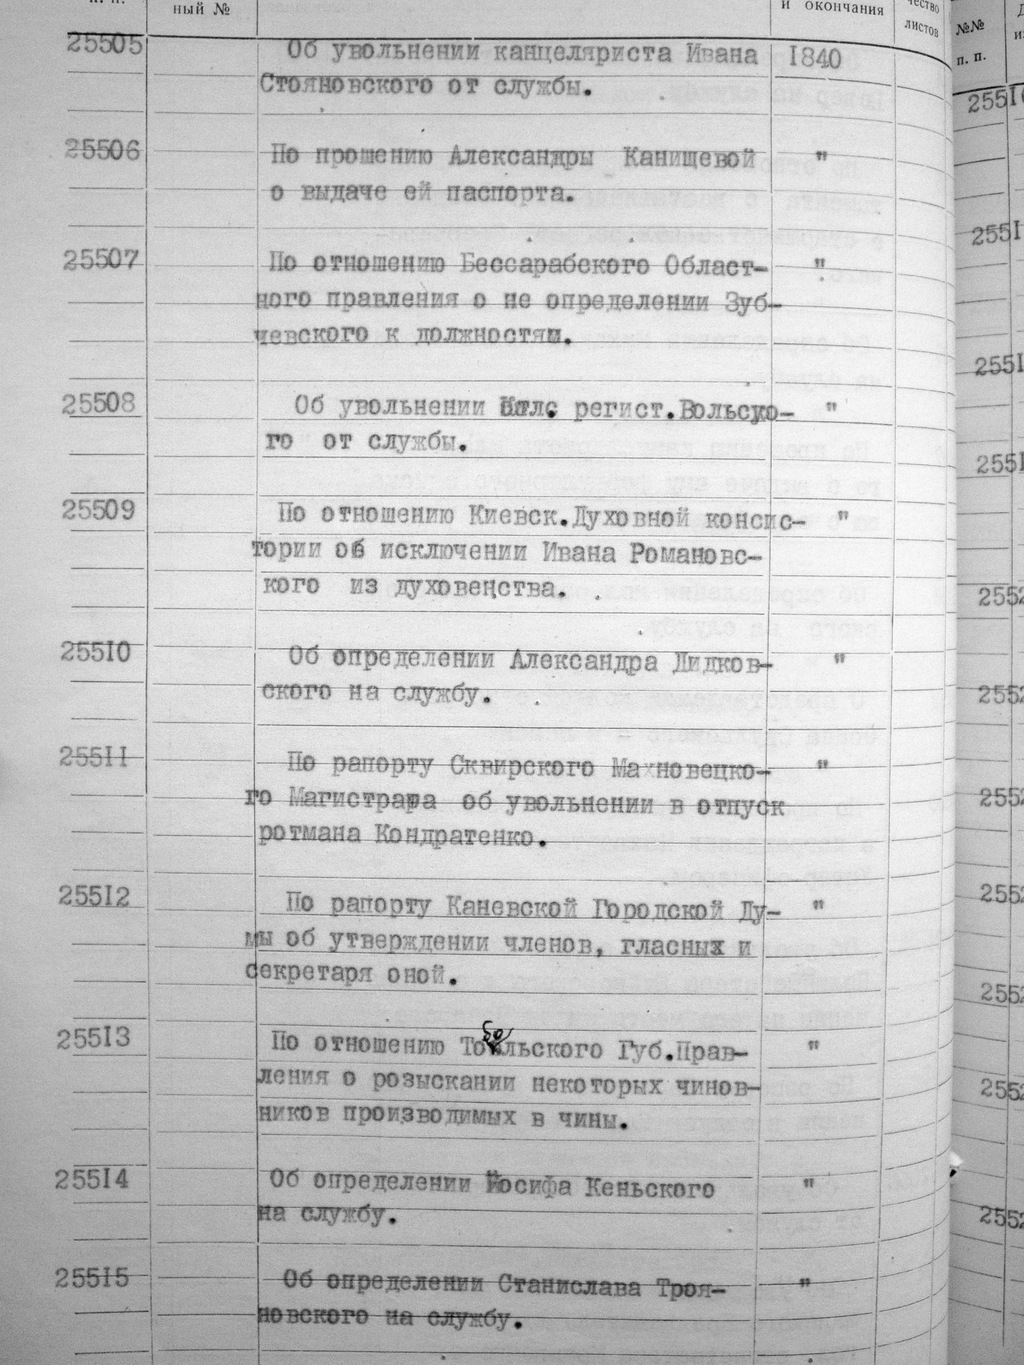 ный №
и окончания
чество
листов
25505 Об увольнении канцеляриста Ивана 1840
Стояновского от службы.
25506 По прошению Александры Канищевой "
о выдаче ей паспорта.
25507 По отношению Бессарабского Област- "
ного правления о не определении Зуб-
чевского к должностям.
25508 Об увольнении регист.Вольско- "
го от службы.
25509 По отношению Киевск.Духовной консис- "
тории об исключении Ивана Романовс-
кого из духовенства.
25510 Об определении Александра Дидков- "
ского на службу.
25511 По рапорту Сквирского Махновецко- "
го Магистрата об увольнении в отпуск
ротмана Кондратенко.
25512 По рапорту Каневской Городской Ду- "
мы об утверждении членов, гласных и
секретаря оной.
25513 По отношению Тобольского Губ.Прав- "
ления о розыскании некоторых чинов-
ников производимых в чины.
25514 Об определении Иосифа Кеньского "
на службу.
25515 Об определении Станислава Троя- "
новского на службу.
№№
п. п.